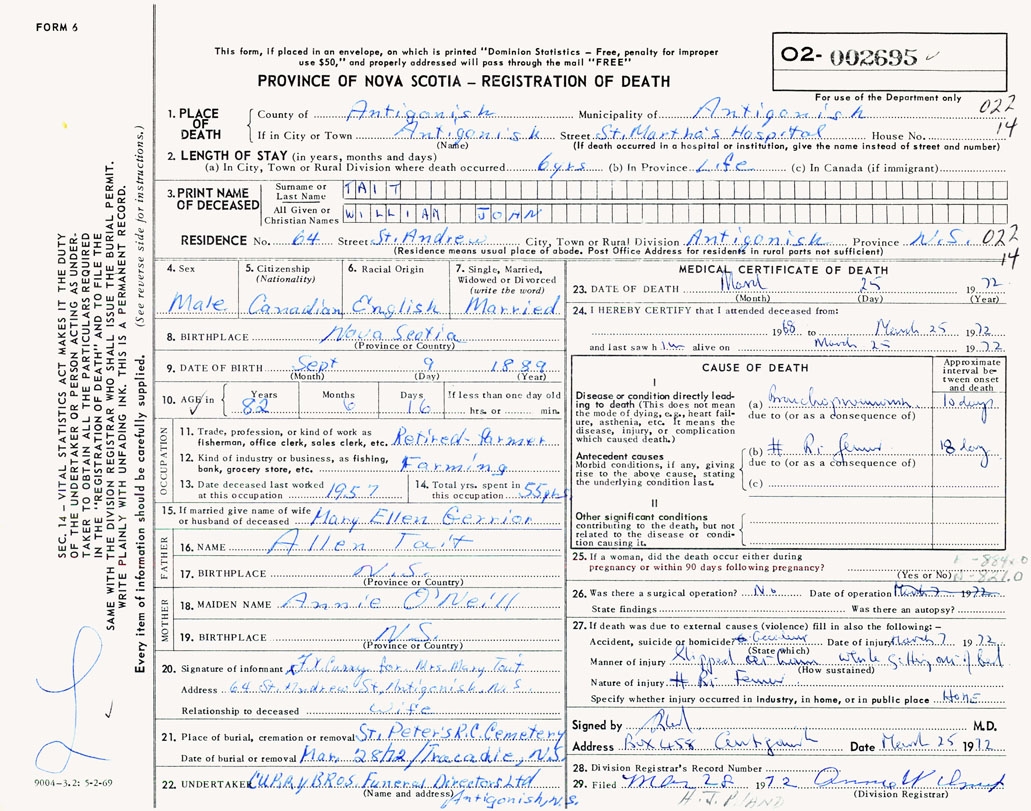 FORM 6
This form, if placed in an envelope, on which is printed "Dominion Statistics – Free, penalty for improper
use $50," and properly addressed will pass through the mail "FREE"
PROVINCE OF NOVA SCOTIA – REGISTRATION OF DEATH
O2- 002695
For use of the Department only
022
14
1. PLACE OF DEATH
County of Antigonish Municipality of Antigonish
If in City or Town Antigonish Street St. Martha's Hospital House No.
(Name) (If death occurred in a hospital or institution, give the name instead of street and number)
2. LENGTH OF STAY (in years, months and days)
(a) In City, Town or Rural Division where death occurred 6 yrs (b) In Province Life (c) In Canada (if immigrant)
3. PRINT NAME OF DECEASED
Surname or Last Name TAIT
All Given or Christian Names WILLIAM JOHN
RESIDENCE No. 64 Street St. Andrew City, Town or Rural Division Antigonish Province N.S.
(Residence means usual place of abode. Post Office Address for residents in rural parts not sufficient)
022
14
4. Sex
Male
5. Citizenship
(Nationality)
Canadian
6. Racial Origin
English
7. Single, Married,
Widowed or Divorced
(write the word)
Married
8. BIRTHPLACE Nova Scotia
(Province or Country)
9. DATE OF BIRTH Sept 9 1889
(Month) (Day) (Year)
10. AGE in Years 82 Months 6 Days 16 If less than one day old
hrs. or min.
OCCUPATION
11. Trade, profession, or kind of work as
fisherman, office clerk, sales clerk, etc. Retired-Farmer
12. Kind of industry or business, as fishing,
bank, grocery store, etc. Farming
13. Date deceased last worked
at this occupation 1957
14. Total yrs. spent in
this occupation 55 yrs.
15. If married give name of wife
or husband of deceased Mary Ellen Gerrior
FATHER
16. NAME Allen Tait
17. BIRTHPLACE N.S.
(Province or Country)
MOTHER
18. MAIDEN NAME Annie O'Neill
19. BIRTHPLACE N.S.
(Province or Country)
20. Signature of informant for Mrs. Mary Tait
Address 64 St. Andrew St, Antigonish, N.S.
Relationship to deceased wife
21. Place of burial, cremation or removal St. Peter's R.C. Cemetery
Date of burial or removal Mar. 28/72 / Tracadie, N.S.
22. UNDERTAKER CURRY BROS. Funeral Directors Ltd
(Name and address) Antigonish, N.S.
MEDICAL CERTIFICATE OF DEATH
23. DATE OF DEATH March 25 1972
(Month) (Day) (Year)
24. I HEREBY CERTIFY that I attended deceased from:
1968 to March 25 1972
and last saw him alive on March 25 1972
CAUSE OF DEATH
Approximate
interval be-
tween onset
and death
I
Disease or condition directly lead-
ing to death (This does not mean
the mode of dying, e.g., heart fail-
ure, asthenia, etc. It means the
disease, injury, or complication
which caused death.)
(a) Bronchopneumonia 10 days
due to (or as a consequence of)
Antecedent causes
Morbid conditions, if any, giving
rise to the above cause, stating
the underlying condition last.
(b) # Rt. Femur 18 day
due to (or as a consequence of)
(c)
II
Other significant conditions
contributing to the death, but not
related to the disease or condi-
tion causing it.
25. If a woman, did the death occur either during
pregnancy or within 90 days following pregnancy?
(Yes or No)
26. Was there a surgical operation? No Date of operation March 7 1972
State findings Was there an autopsy?
27. If death was due to external causes (violence) fill in also the following: –
Accident, suicide or homicide? Date of injury March 7 1972
(State which)
Manner of injury Slipped at home while getting out of bed
(How sustained)
Nature of injury # Rt Femur
Specify whether injury occurred in industry, in home, or in public place HOME
Signed by M.D.
Address Box 458 Antigonish Date March 25 1972
28. Division Registrar's Record Number
29. Filed Mar 28 1972
(Division Registrar)
SEC. 14 – VITAL STATISTICS ACT MAKES IT THE DUTY
OF THE UNDERTAKER OR PERSON ACTING AS UNDER-
TAKER TO OBTAIN ALL THE PARTICULARS REQUIRED
IN THE "REGISTRATION OF DEATH" AND TO FILE THE
SAME WITH THE DIVISION REGISTRAR WHO SHALL ISSUE THE BURIAL PERMIT.
WRITE PLAINLY WITH UNFADING INK. THIS IS A PERMANENT RECORD.
Every item of information should be carefully supplied. (See reverse side for instructions.)
9004-3.2: 5-2-69